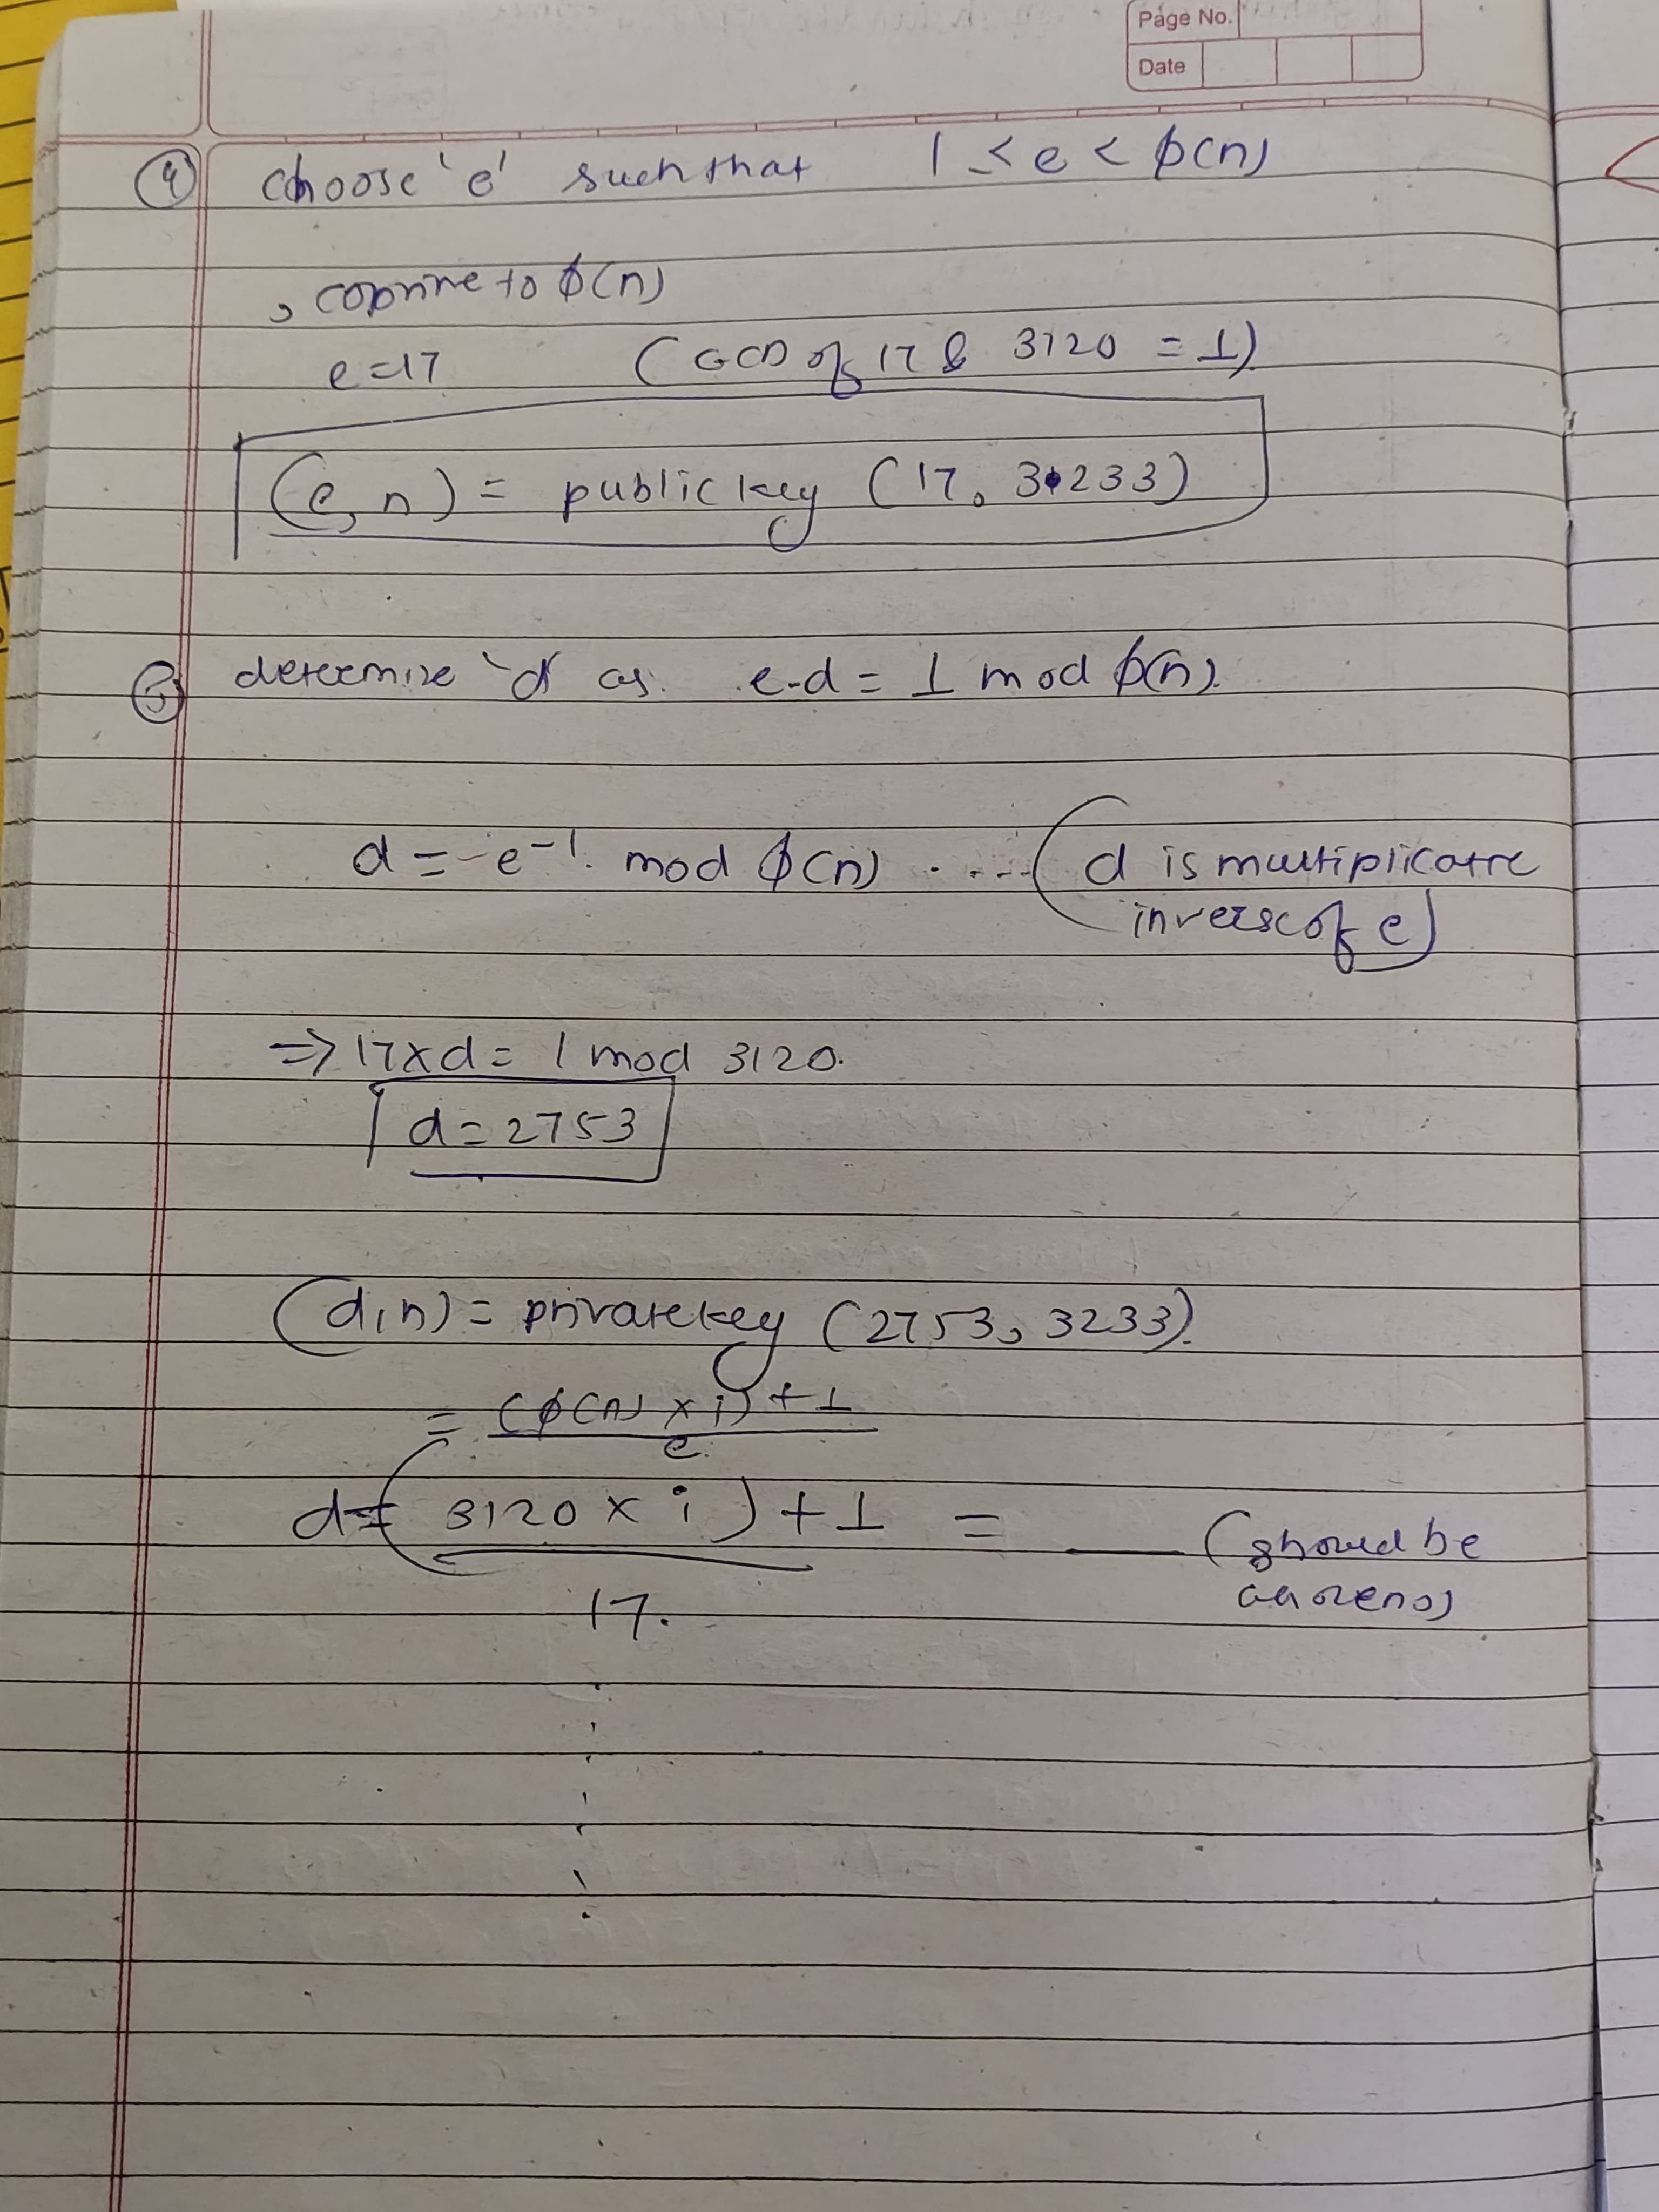 Page No.
Date
④ choose 'e' such that 1 < e < ϕ(n)
, coprime to ϕ(n)
e=17 (GCD of 17 & 3120 = 1)
(e, n) = public key (17, 3233)
⑤ determine 'd' as. e.d = 1 mod ϕ(n).
d = e⁻¹ mod ϕ(n) ..... (d is multiplicative
inverse of e)
⇒ 17×d = 1 mod 3120.
d = 2753
(d, n) = private key (2753, 3233).
= (ϕ(n) × i) + 1
e
d = (3120 × i) + 1 = ___ (should be
17.